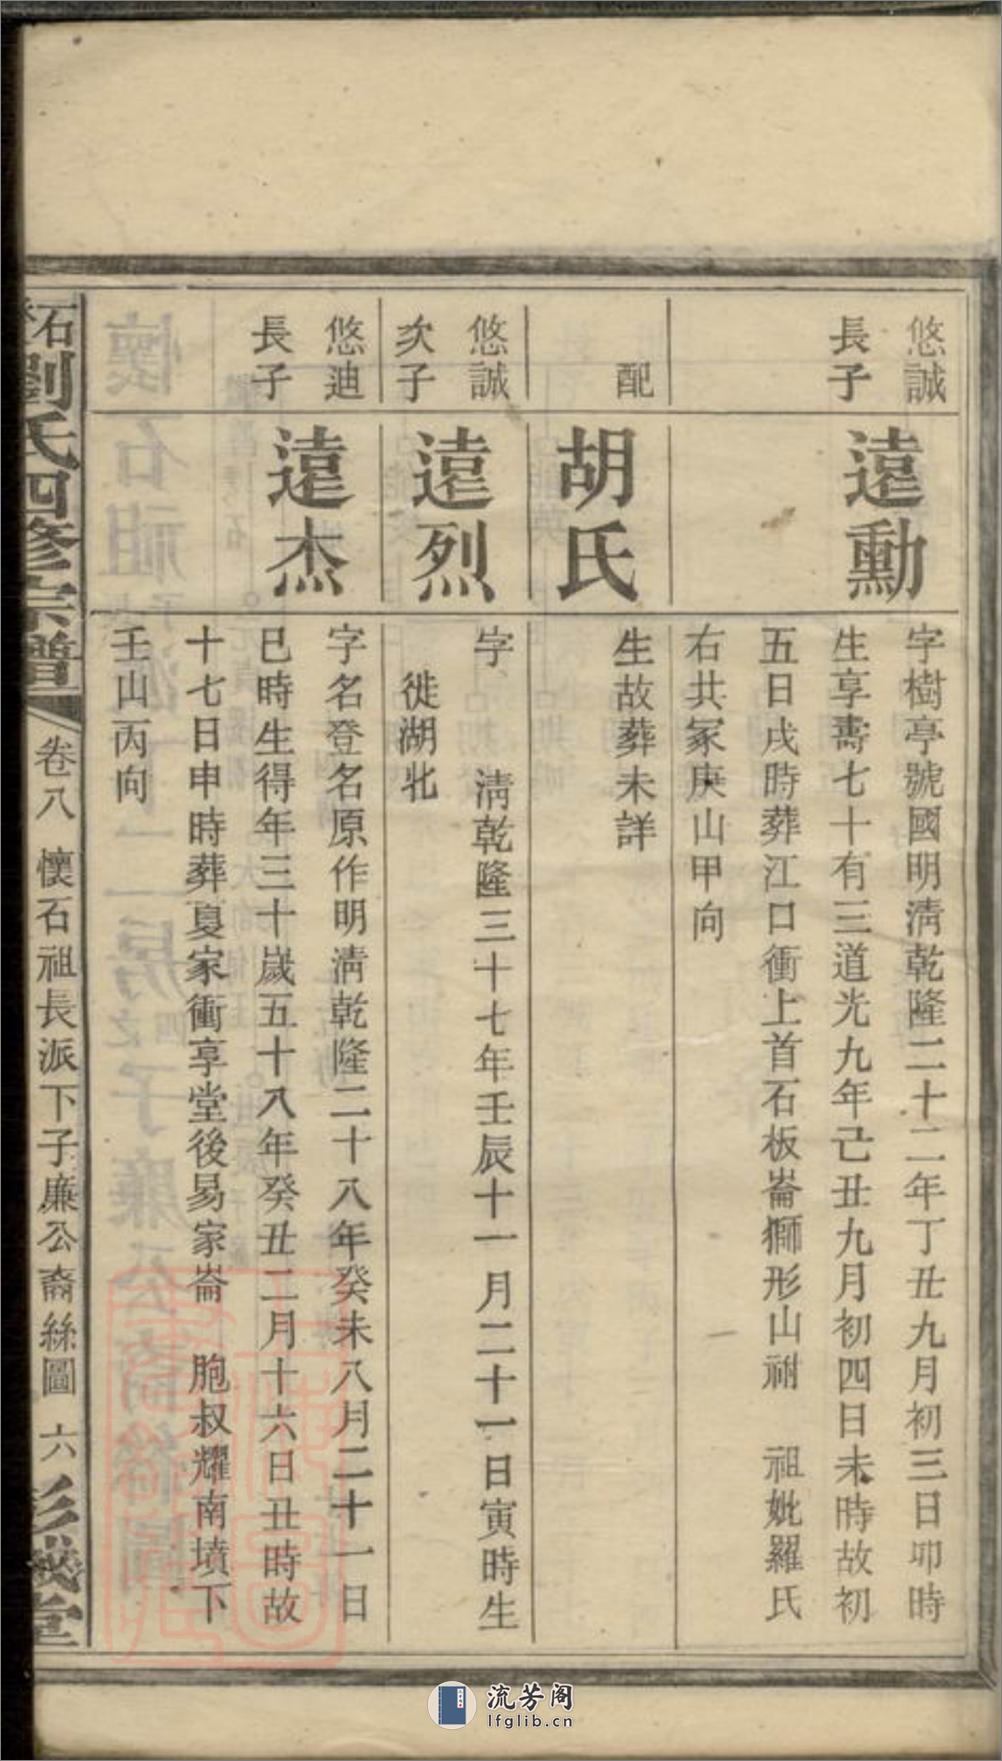 悠誠
長子
遠勳
字樹亭號國明淸乾隆二十二年丁丑九月初三日卯時
生享壽七十有三道光九年己丑九月初四日未時故初
五日戌時葬江口衝上首石板崙獅形山祔　祖妣羅氏
右共冢庚山甲向
配
胡氏
生故葬未詳
悠誠
次子
遠烈
字　淸乾隆三十七年壬辰十一月二十一日寅時生
徙湖北
悠迪
長子
遠杰
字名登名原作明淸乾隆二十八年癸未八月二十一日
巳時生得年三十歲五十八年癸丑二月十六日丑時故
十七日申時葬夏家衝享堂後易家崙　胞叔耀南墳下
壬山丙向
石劉氏四修宗譜
卷八　懷石祖長派下子廉公裔絲圖　六
彭城堂
流芳阁
lfglib.cn